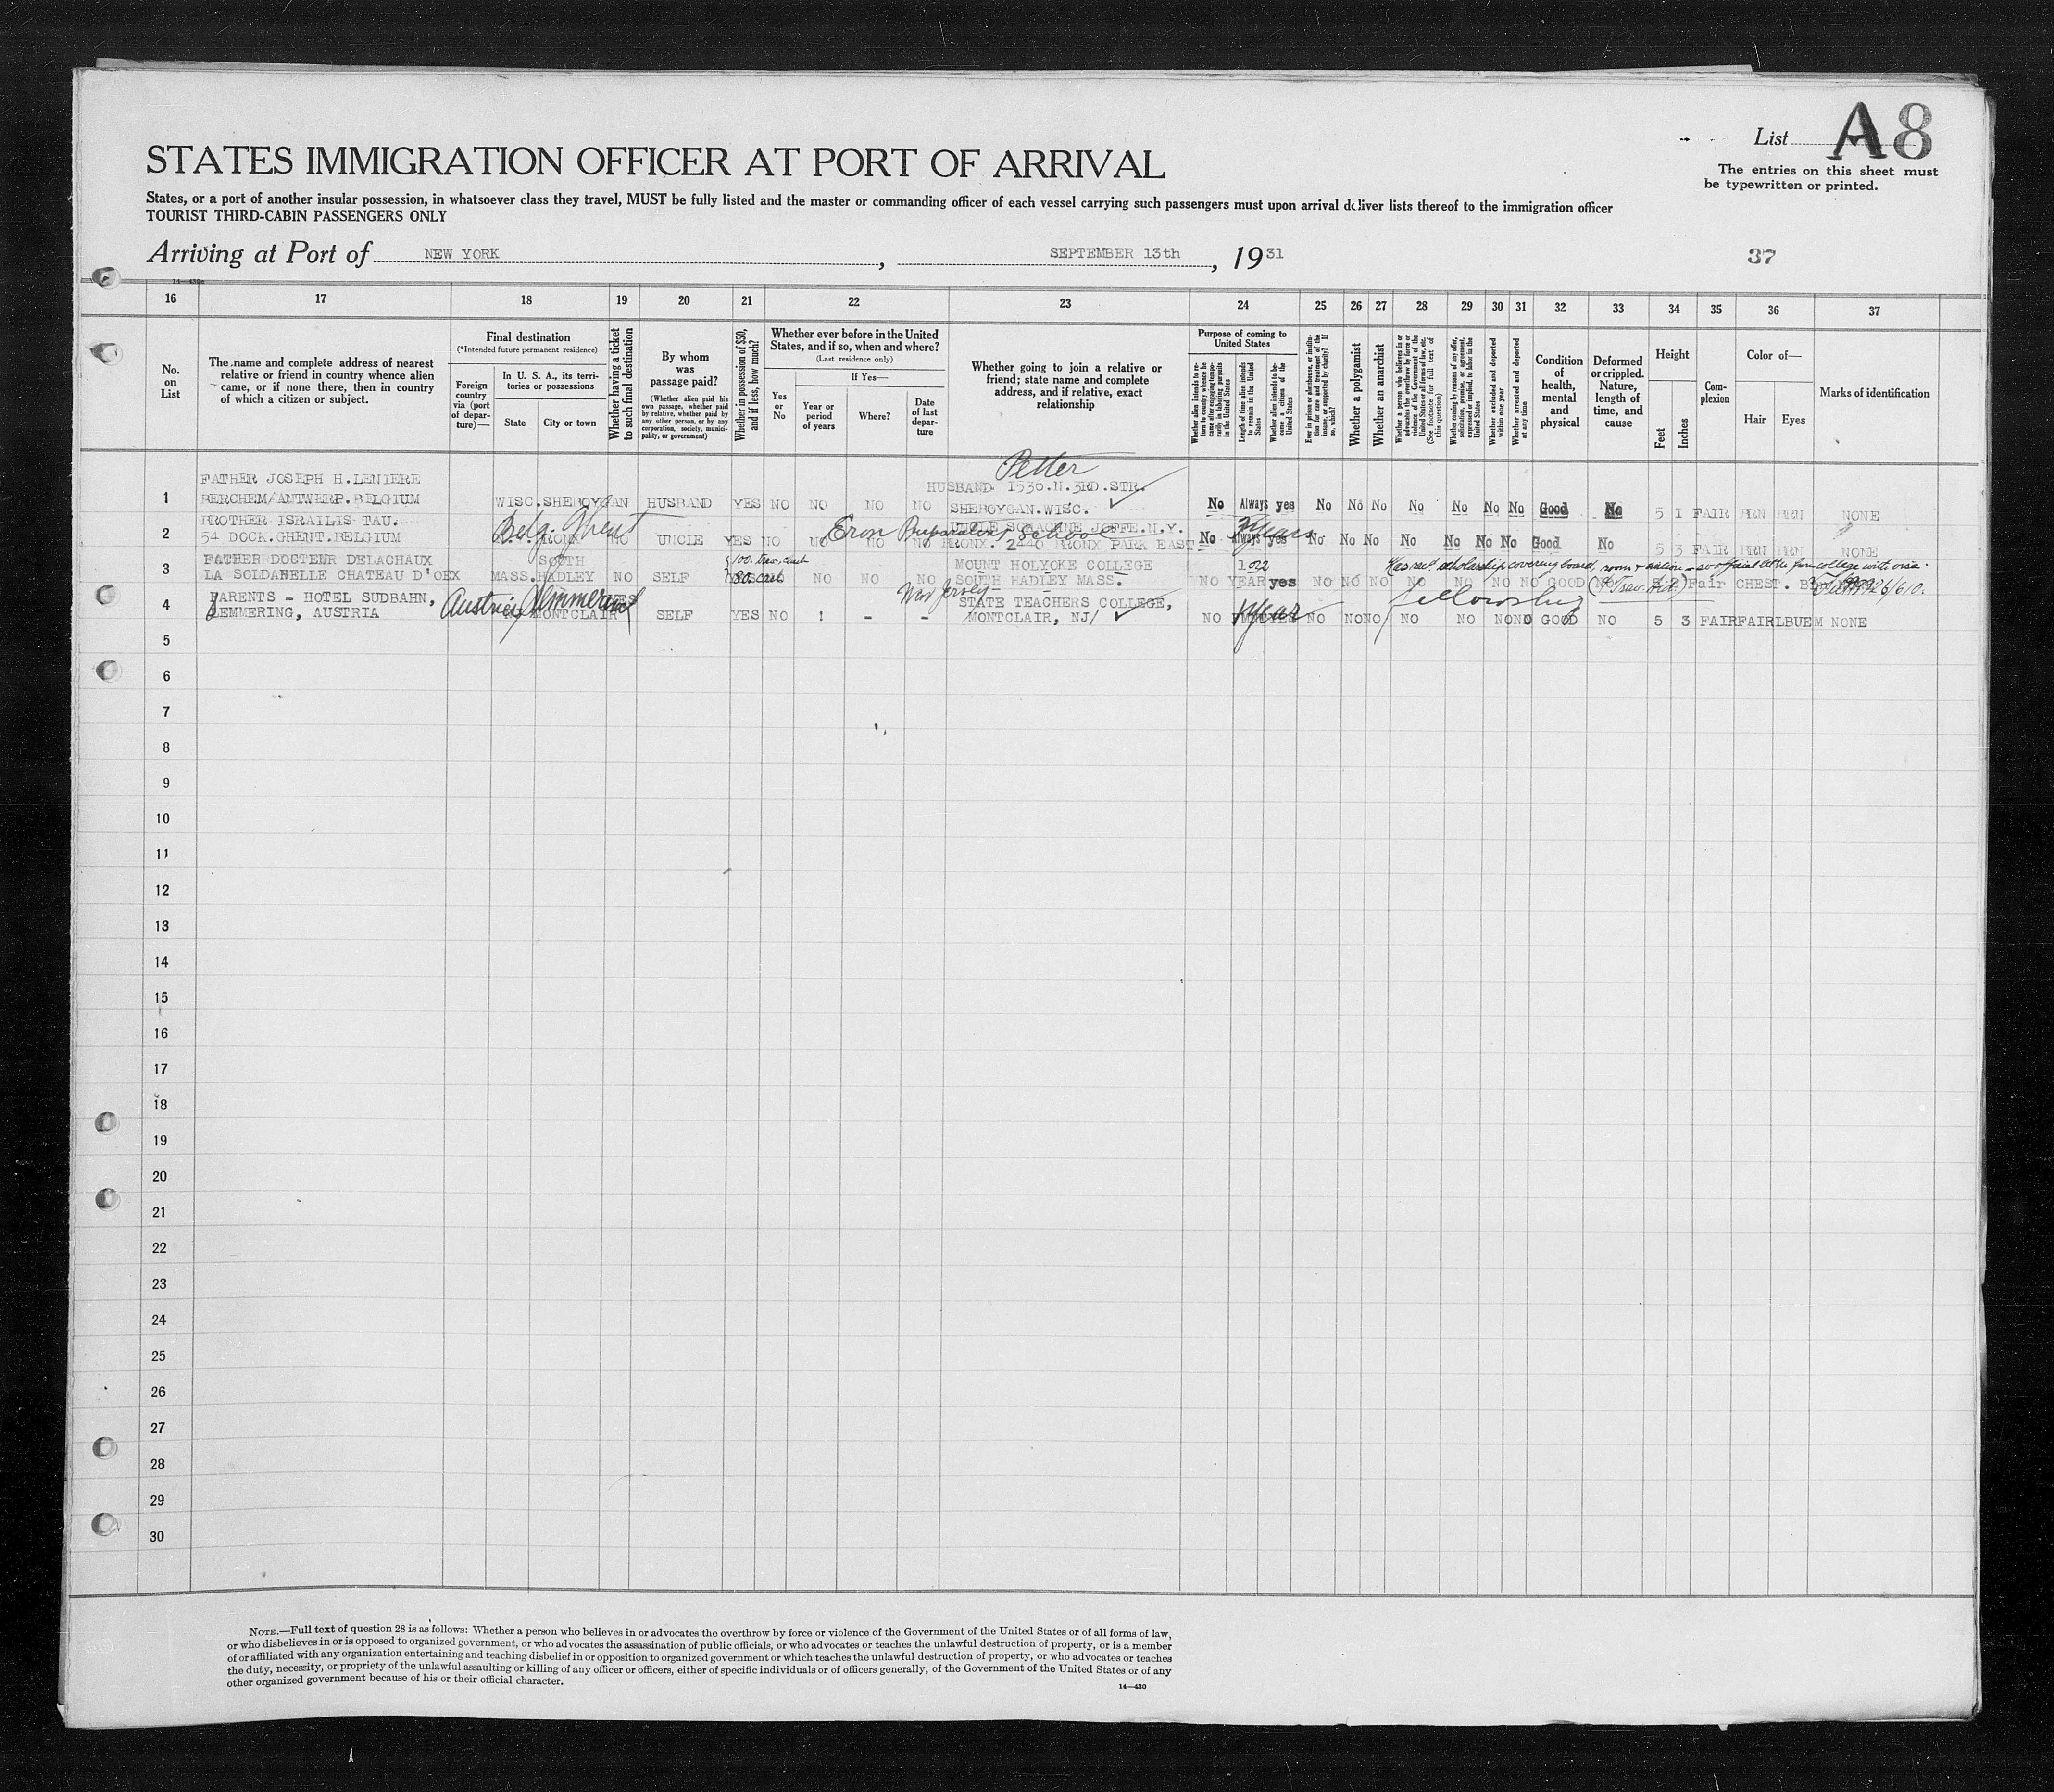 List A8
STATES IMMIGRATION OFFICER AT PORT OF ARRIVAL
The entries on this sheet must
be typewritten or printed.
States, or a port of another insular possession, in whatsoever class they travel, MUST be fully listed and the master or commanding officer of each vessel carrying such passengers must upon arrival deliver lists thereof to the immigration officer
TOURIST THIRD-CABIN PASSENGERS ONLY
Arriving at Port of NEW YORK, SEPTEMBER 13th, 1931
37
14—430
16 17 18 19 20 21 22 23 24 25 26 27 28 29 30 31 32 33 34 35 36 37
No.
on
List
The name and complete address of nearest
relative or friend in country whence alien
came, or if none there, then in country
of which a citizen or subject.
Final destination
(*Intended future permanent residence)
Foreign
country
via (port
of depar-
ture)—
In U. S. A., its terri-
tories or possessions
State
City or town
Whether having a ticket
to such final destination
By whom
was
passage paid?
(Whether alien paid his
own passage, whether paid
by relative, whether paid by
any other person, or by any
corporation, society, munici-
pality, or government)
Whether in possession of $50,
and if less, how much?
Whether ever before in the United
States, and if so, when and where?
(Last residence only)
Yes
or
No
If Yes—
Year or
period
of years
Where?
Date
of last
depar-
ture
Whether going to join a relative or
friend; state name and complete
address, and if relative, exact
relationship
Purpose of coming to
United States
Whether alien intends to re-
turn to country whence he
came after engaging tempo-
rarily in laboring pursuits
in the United States
Length of time alien intends
to remain in the United
States
Whether alien intends to be-
come a citizen of the
United States
Ever in prison or almshouse, or institu-
tion for care and treatment of the
insane, or supported by charity? If
so, which?
Whether a polygamist
Whether an anarchist
Whether a person who believes in or
advocates the overthrow by force or
violence of the Government of the
United States or all forms of law, etc.
(See footnote for full text of
this question)
Whether coming by reasons of any offer,
solicitation, promise, or agreement,
expressed or implied, to labor in the
United States
Whether excluded and deported
within one year
Whether arrested and deported
at any time
Condition
of
health,
mental
and
physical
Deformed
or crippled.
Nature,
length of
time, and
cause
Height
Feet
Inches
Com-
plexion
Color of—
Hair
Eyes
Marks of identification
Petter
FATHER JOSEPH H.LENIERE
HUSBAND 1530.N.3RD.STR.
1 BERCHEM/ANTWERP.BELGIUM WISC. SHEBOYGAN HUSBAND YES NO NO NO NO SHEBOYGAN.WISC. No Always yes No No No No No No No Good No 5 1 FAIR BRN BRN NONE
BROTHER ISRAILIS TAU. Belg. Ghent Eron Preparatory School UNCLE SCHACHNE JOFFE.N.Y. 2 years
2 54 DOCK.GHENT.BELGIUM BRONX NO UNCLE YES NO NO NO NO BRONX. 2440 BRONX PARK EAST No Always yes No No No No No No No Good No 5 3 FAIR BRN BRN NONE
FATHER DOCTEUR DELACHAUX SOUTH MOUNT HOLYOKE COLLEGE
Has rec'd scholarship covering board, room & tuition - so official letter from college with visa.
3 LA SOLDANELLE CHATEAU D'OEX MASS. HADLEY NO SELF NO NO NO SOUTH HADLEY MASS. NO YEAR yes NO NO NO NO NO NO NO GOOD NO Fair CHEST.
PARENTS - HOTEL SUDBAHN, Austria New Jersey STATE TEACHERS COLLEGE, 1 year fellowship
4 SEMMERING, AUSTRIA MONTCLAIR SELF YES NO ! - - MONTCLAIR, NJ/ NO NO NO NO NO NO NO NO GOOD NO 5 3 FAIR FAIR BLUE NONE
5
6
7
8
9
10
11
12
13
14
15
16
17
18
19
20
21
22
23
24
25
26
27
28
29
30
NOTE.—Full text of question 28 is as follows: Whether a person who believes in or advocates the overthrow by force or violence of the Government of the United States or of all forms of law,
or who disbelieves in or is opposed to organized government, or who advocates the assassination of public officials, or who advocates or teaches the unlawful destruction of property, or is a member
of or affiliated with any organization entertaining and teaching disbelief in or opposition to organized government or which teaches the unlawful destruction of property, or who advocates or teaches
the duty, necessity, or propriety of the unlawful assaulting or killing of any officer or officers, either of specific individuals or of officers generally, of the Government of the United States or of any
other organized government because of his or their official character.
14—430